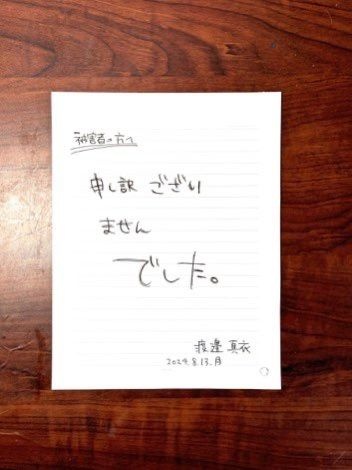 被害者の方へ
申し訳ござい
ません
でした。
渡邊真衣
2024.8.13.月